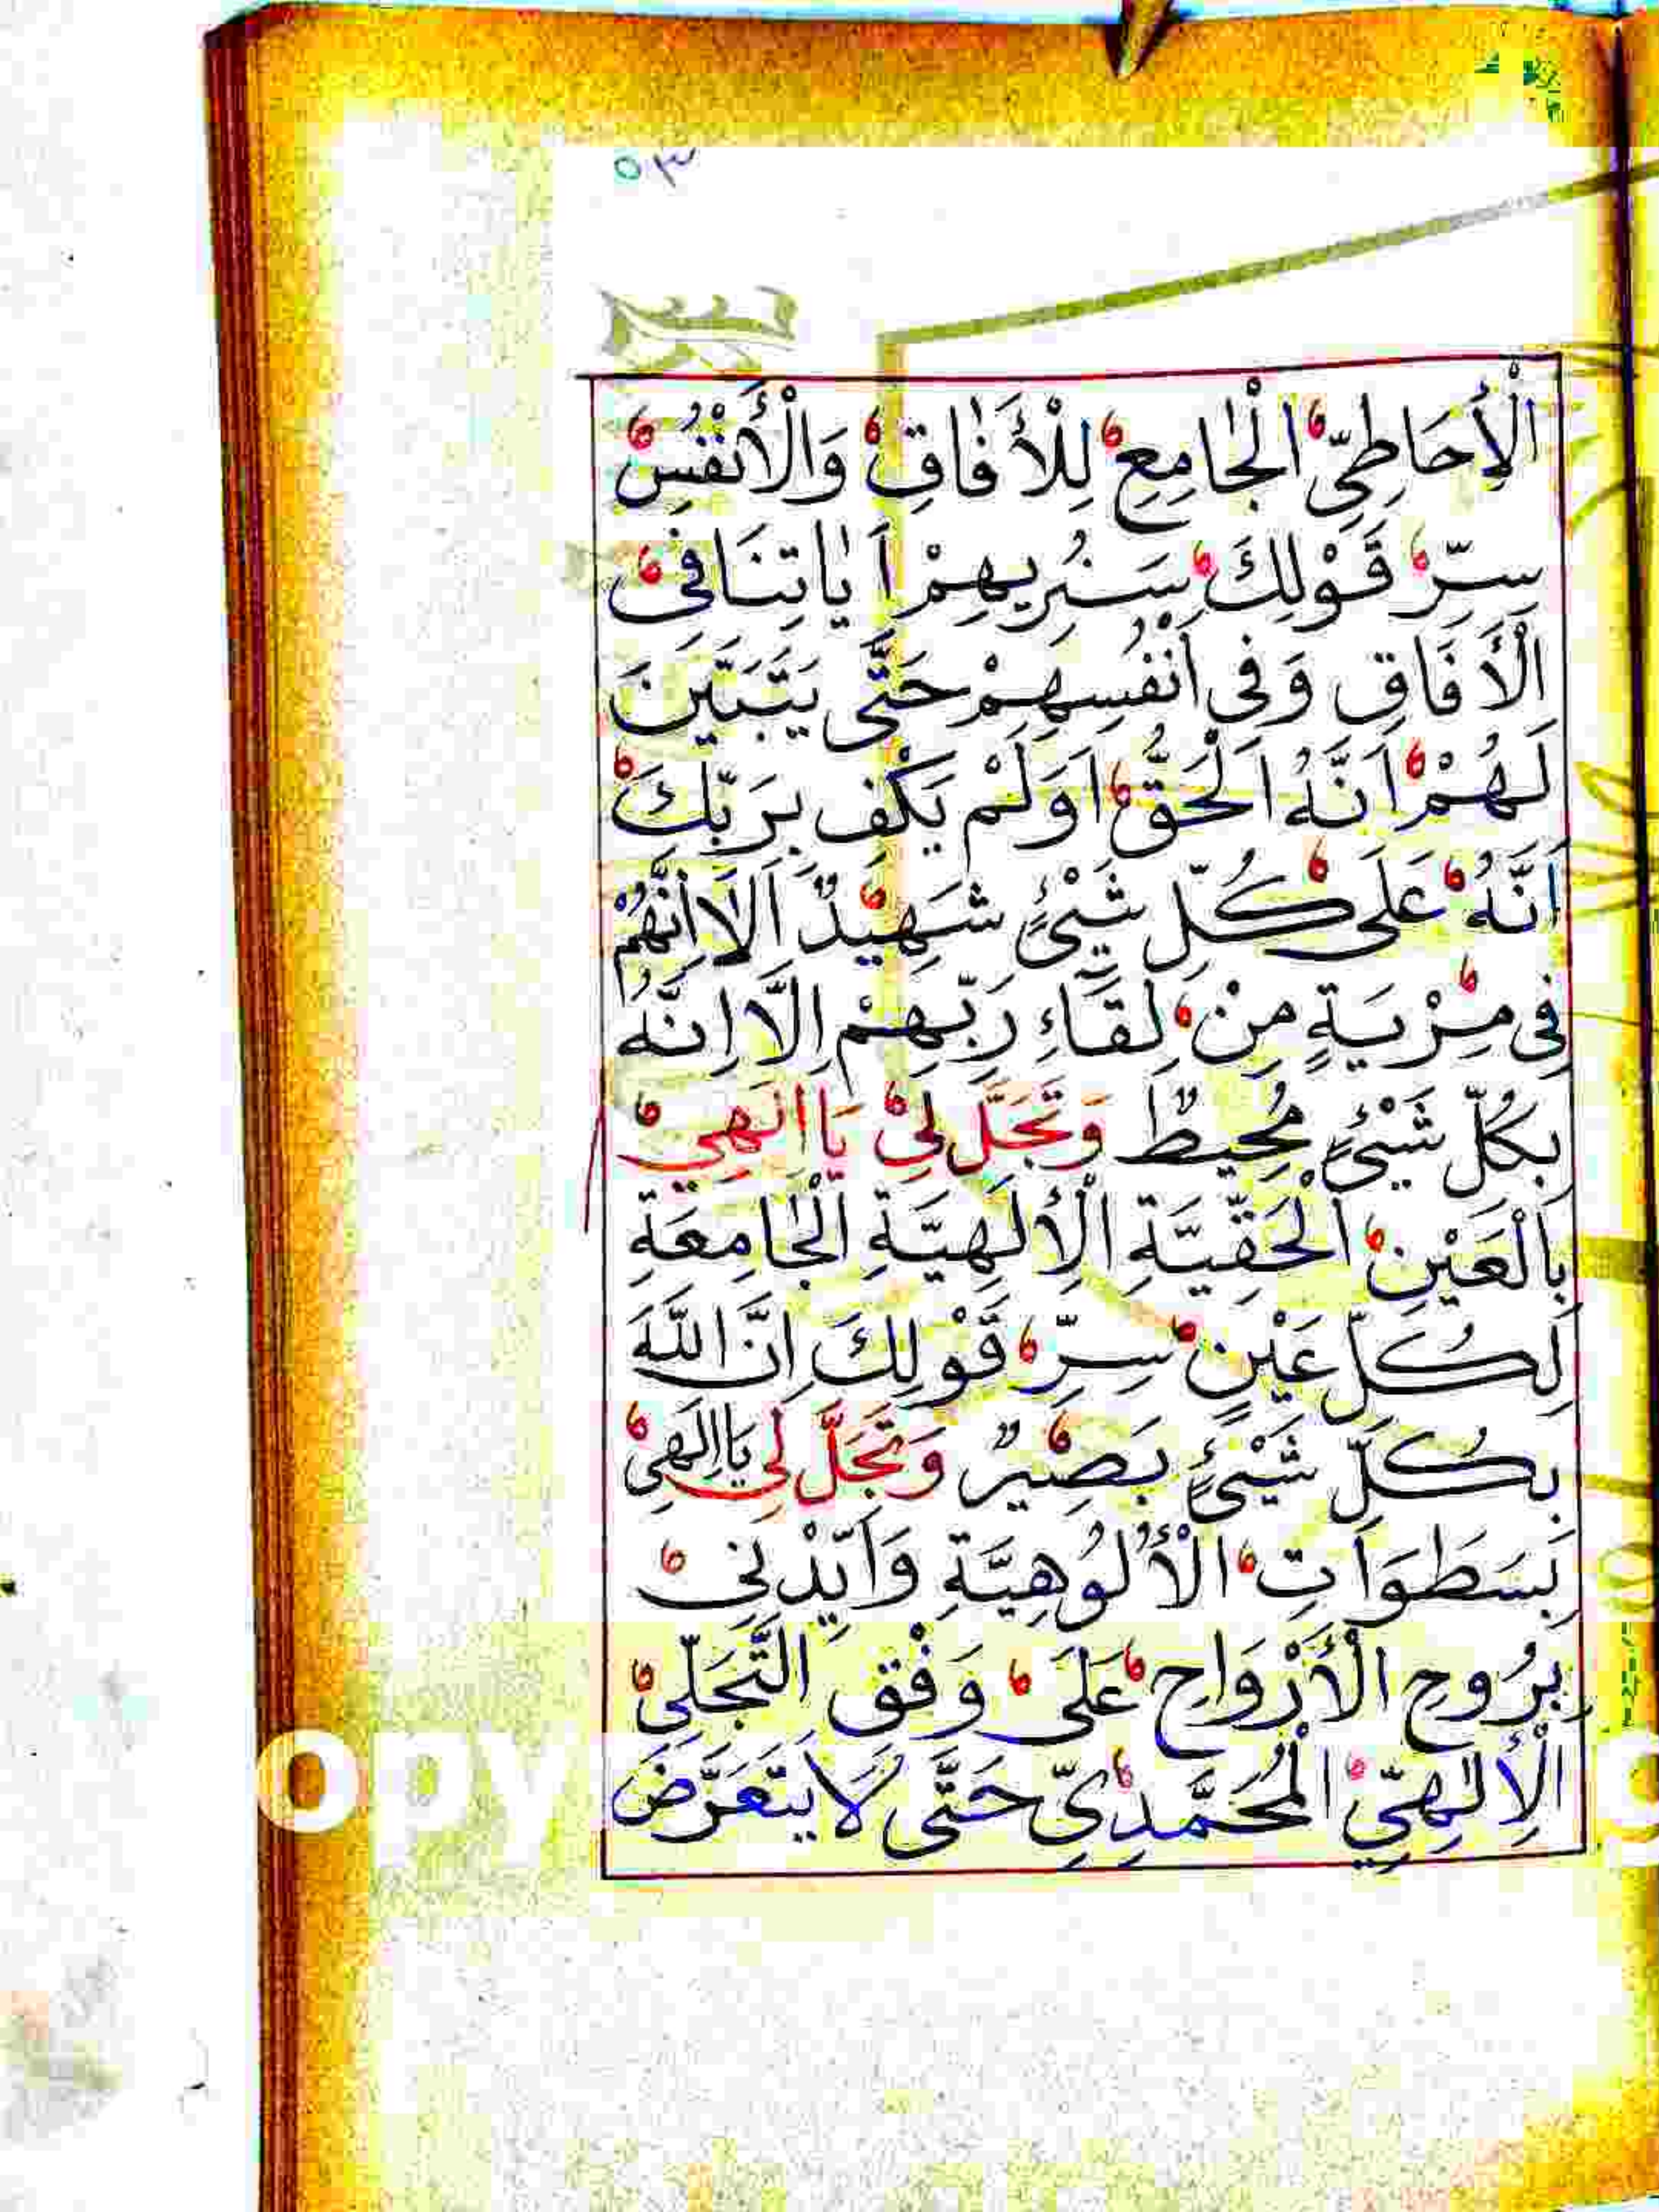 ٥٣
الْأِحَاطِيِّ الْجَامِعِ لِلْأَفَاقِ وَالْأَنْفُسِ
سِرِّ قَوْلِكَ سَنُرِيهِمْ اَيَاتِنَا فِى
الْأَفَاقِ وَفِى اَنْفُسِهِمْ حَتَّى يَتَبَيَّنَ
لَهُمْ اَنَّهُ اَلْحَقُّ اَوَلَمْ يَكْفِ بِرَبِّكَ
اَنَّهُ عَلَى كُلِّ شَيْئٍ شَهِيدٌ اَلَا اِنَّهُمْ
فِى مِرْيَةٍ مِنْ لِقَاءِ رَبِّهِمْ اِلَّا اِنَّهُ
بِكُلِّ شَيْئٍ مُحِيطٌ وَتَجَلَّ لِىْ يَا اِلَهِىْ
بِالْعَيْنِ اَلْحَقِّيَّةِ الْأِلَهِيَّةِ الْجَامِعَةِ
لِكُلِّ عَيْنٍ سِرِّ قَوْلِكَ اِنَّ اللَّهَ
بِكُلِّ شَيْئٍ بَصِيرٌ وَتَجَلَّ لِي يَا اِلَهِىْ
بِسَطَوَاتِ الْأُلُوهِيَّةِ وَاَيِّدْنِى
بِرُوحِ الْأَرْوَاحِ عَلَى وَفْقِ التَّجَلِّى
الْأِلَهِيِّ الْمُحَمَّدِىِّ حَتَّى لَا يَتَعَرَّضَ
opy